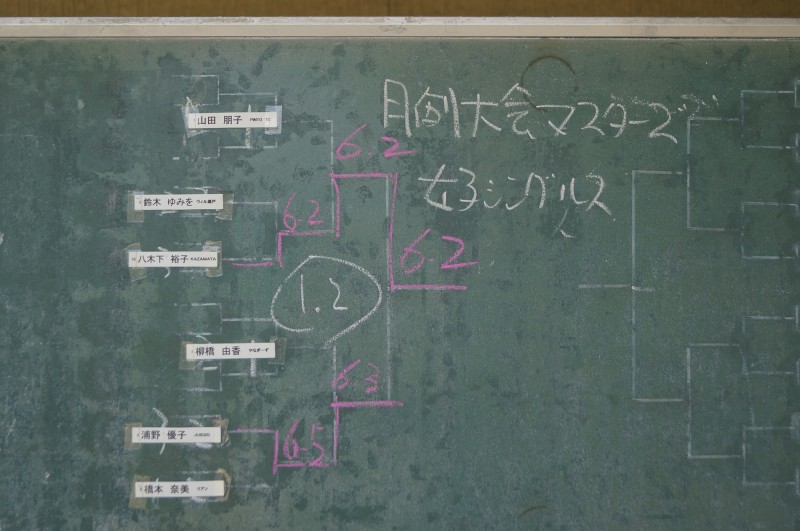 月例大会マスターズ
女子シングルス
山田 朋子
6-2
鈴木 ゆみを ウィル瀬戸
6-2
八木下 裕子 KAZAMATA
6-2
1.2
柳橋 由香 やなぎーず
6-3
浦野 優子
6-5
橋本 奈美 リアン